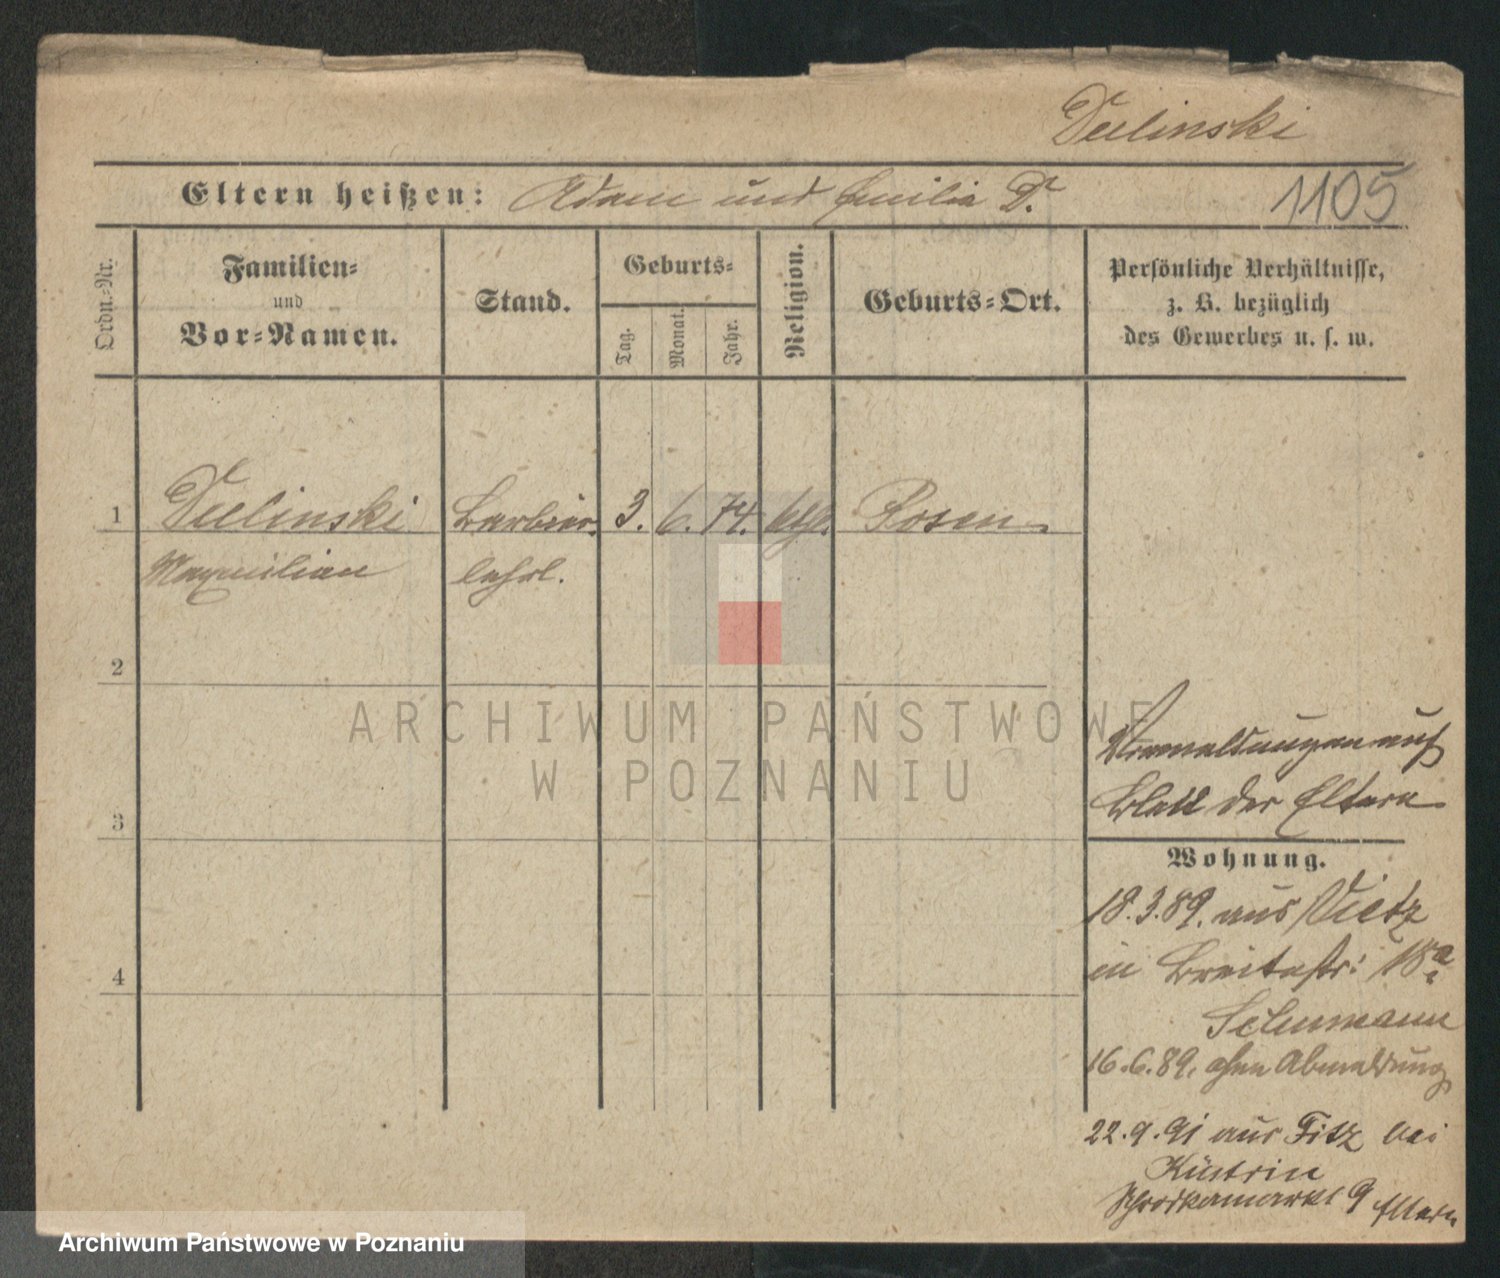 Eltern heißen: Adam und Emilia D.
1105
Ordn.-Nr.
Familien-
und
Vor-Namen.
Stand.
Geburts-
Tag.
Monat.
Jahr.
Religion.
Geburts-Ort.
Persönliche Verhältnisse,
z. B. bezüglich
des Gewerbes u. s. w.
1
Barbier- 3. 6. 74. Posen
Maxmilian lehrl.
2
3
4
ARCHIWUM PAŃSTWOWE
W POZNANIU
auf
Blatt der Eltern
Wohnung.
18.3.89. aus Vietz
in Breitestr: 18a
Schumann
16.6.89. ohne Abmeldung
22.9.91 aus Fitz bei
Küstrin
9 Eltern
Archiwum Państwowe w Poznaniu